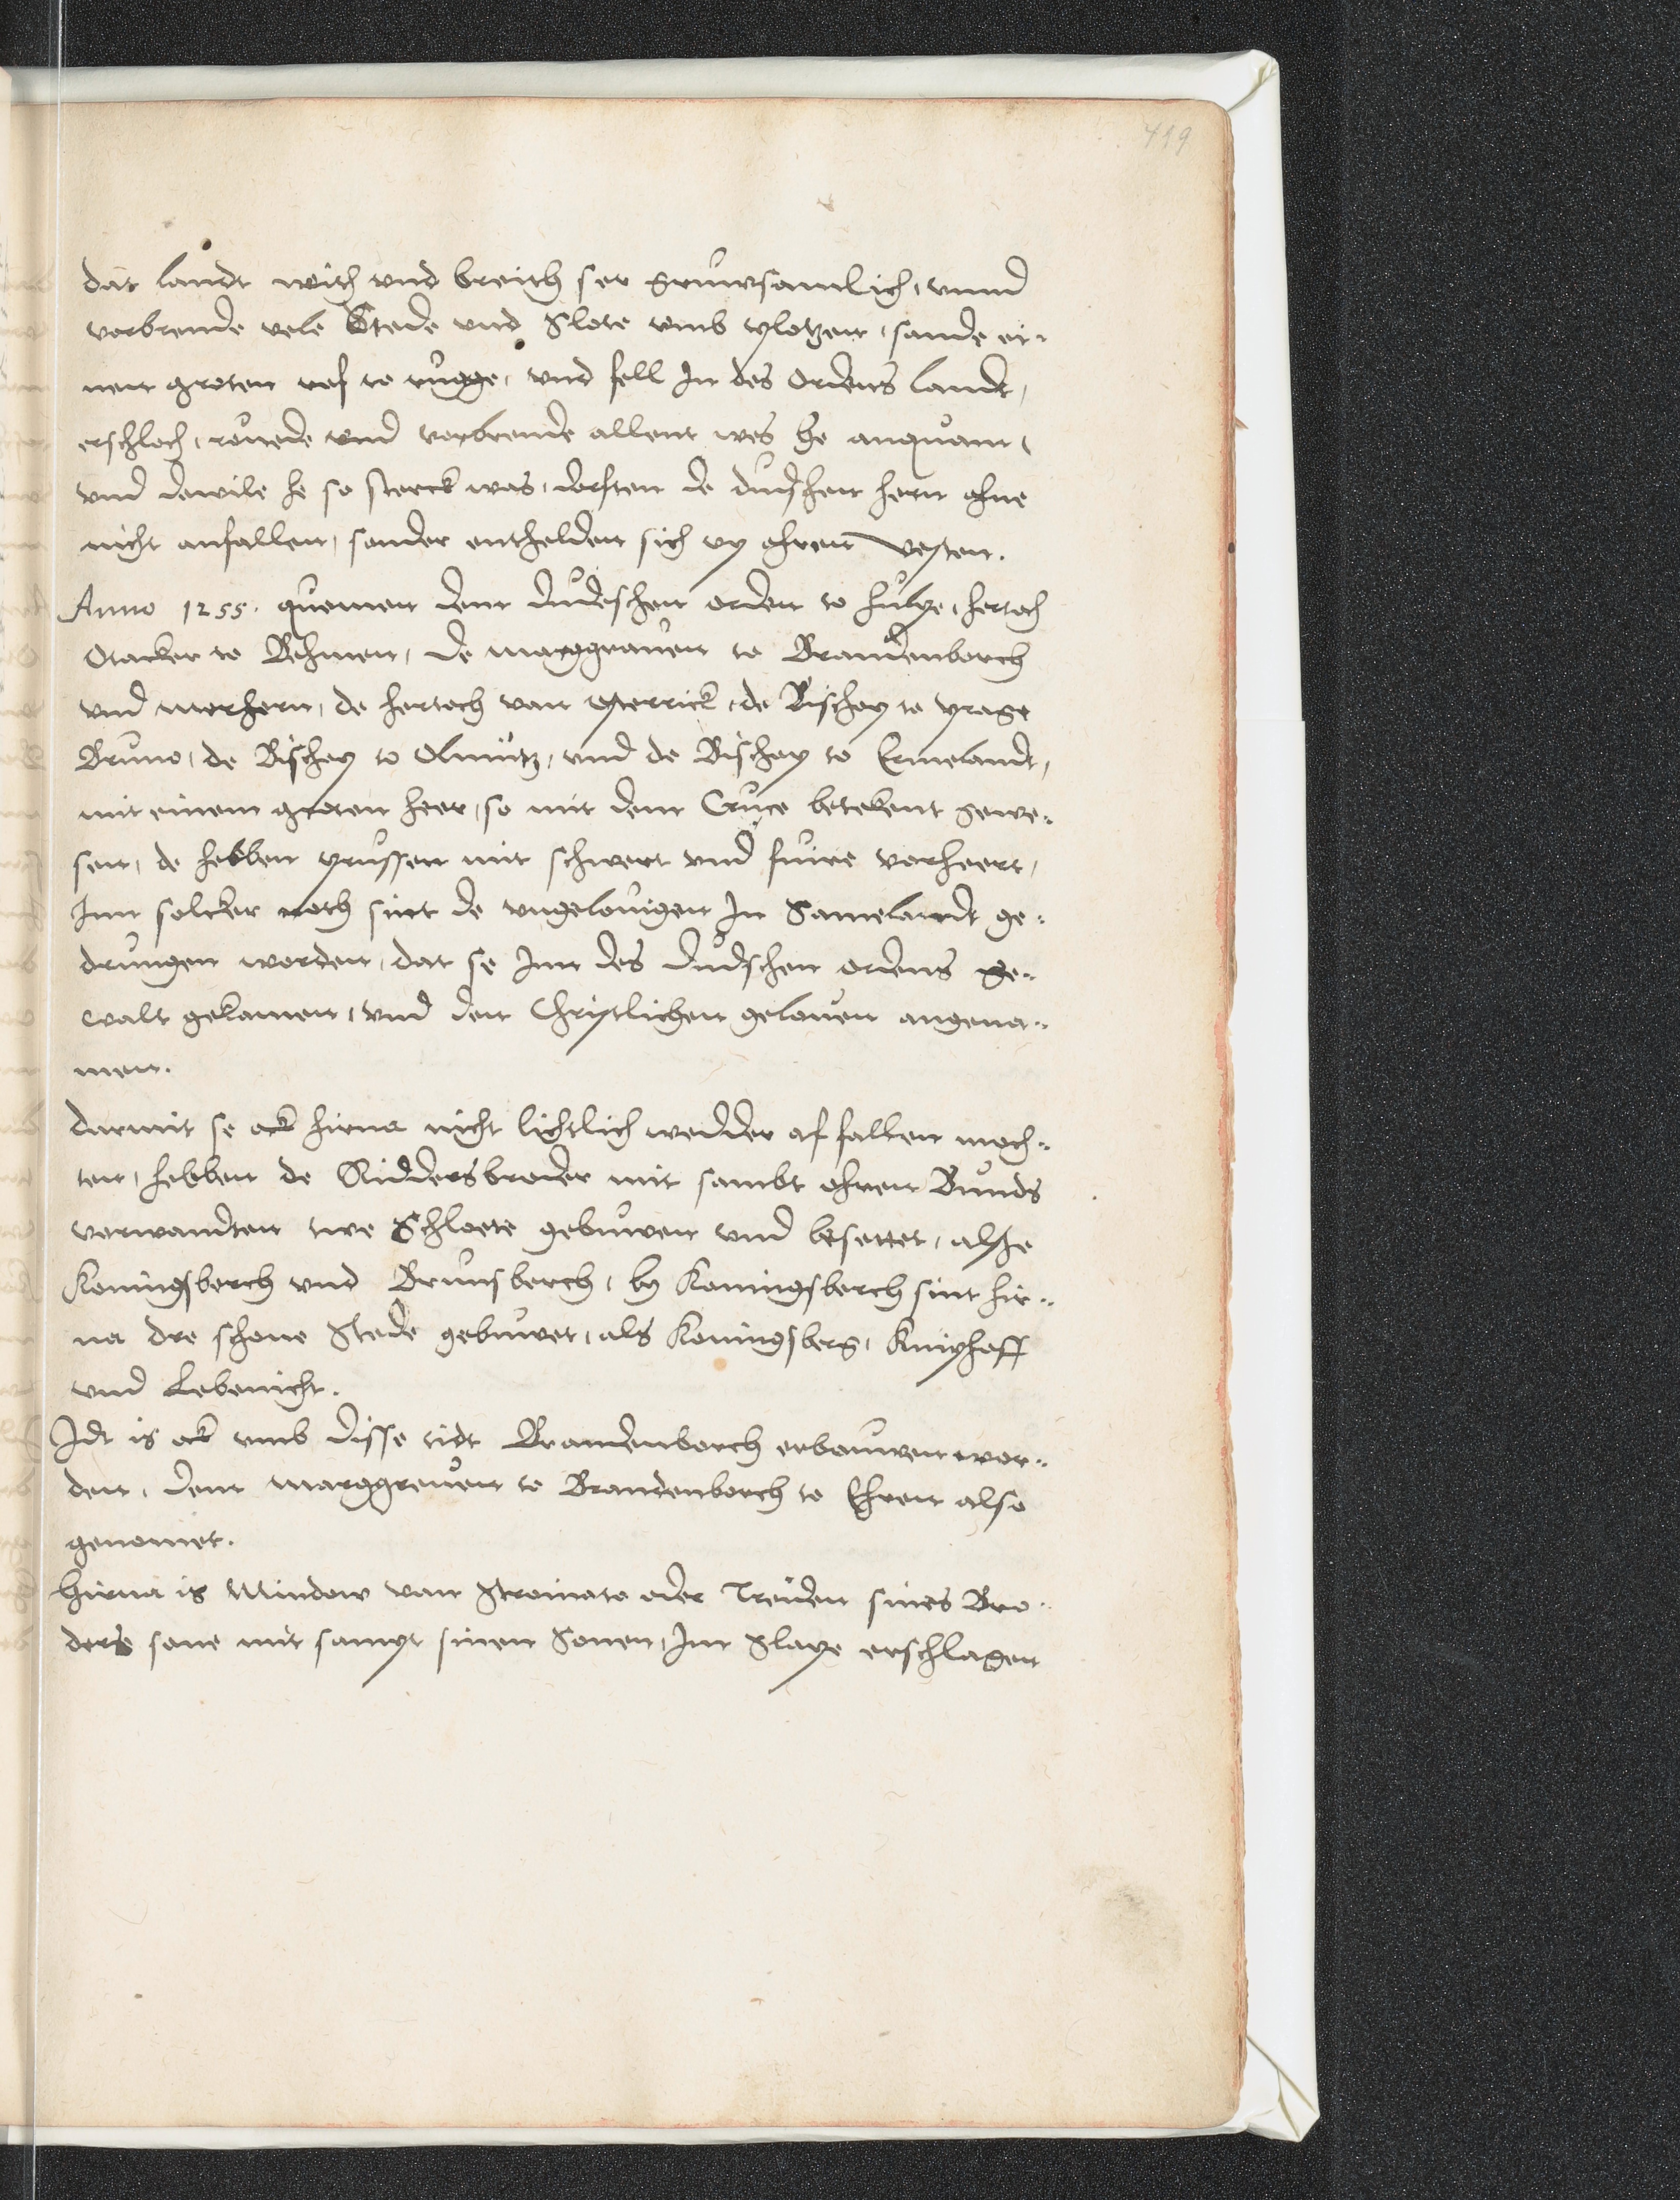 419
dat landt with und breith ser gruwsamlich, vnnd
vorbrende vele Stede vnd Slote vmb plotzen, sande ei„
nen groten rof to rugge, vnd fell In des Ordens landt,
erschloch, rouede vnd vorbrende allent wes he anquam,
vnd dewile he so sterck was, dorsten de dudschen hern ohne
nicht anfallen, sonder enthelden sich vp ohren vesten.
Anno 1255. quemen dem dudeschen orden to hulpe, hertoch
Otacker to Behmen, de marggrauen to Brandenborch
vnd merhern, de hertoch van osterrick, de Bischop to prage
Bruno, de Bischop to Olmütz, vnd de Bischop to Ermelandt,
mit einem groten heer, so mit dem Cruce betekent gewe„
sen, de hebben prussen mit schwert vnd fuire vorheert,
Inn solcker noth sint de vngelouigen In Samelandt ge„
drungen worden, dat se Inn des dudschen ordens ge„
walt gekamen, vnd den Christlichen gelouen angena„
men.
darmit se ock hirna nicht lichtlich wedder affallen moch„
ten, hebben de Riddersbroder mit sambt ohren Bunds
verwandten twe Schloete gebuwen vnd besettet, alsze
Koningsberch vnd Brunsberch, by Koningsberch sint hir„
na dre schone Stede gebuwet, als Koningsberg, Kniphoff
vnd Lebenicht.
Idt is ock vmb disse tidt Brandenborch erbouwen wor„
den, dem marggreuen to Brandenborch to Ehren also
genomet.
hirna is Mindow van Stroinato oder Treuden sines Bro„
ders sone mit sampt sinen Sonen, Im Slape erschlagen